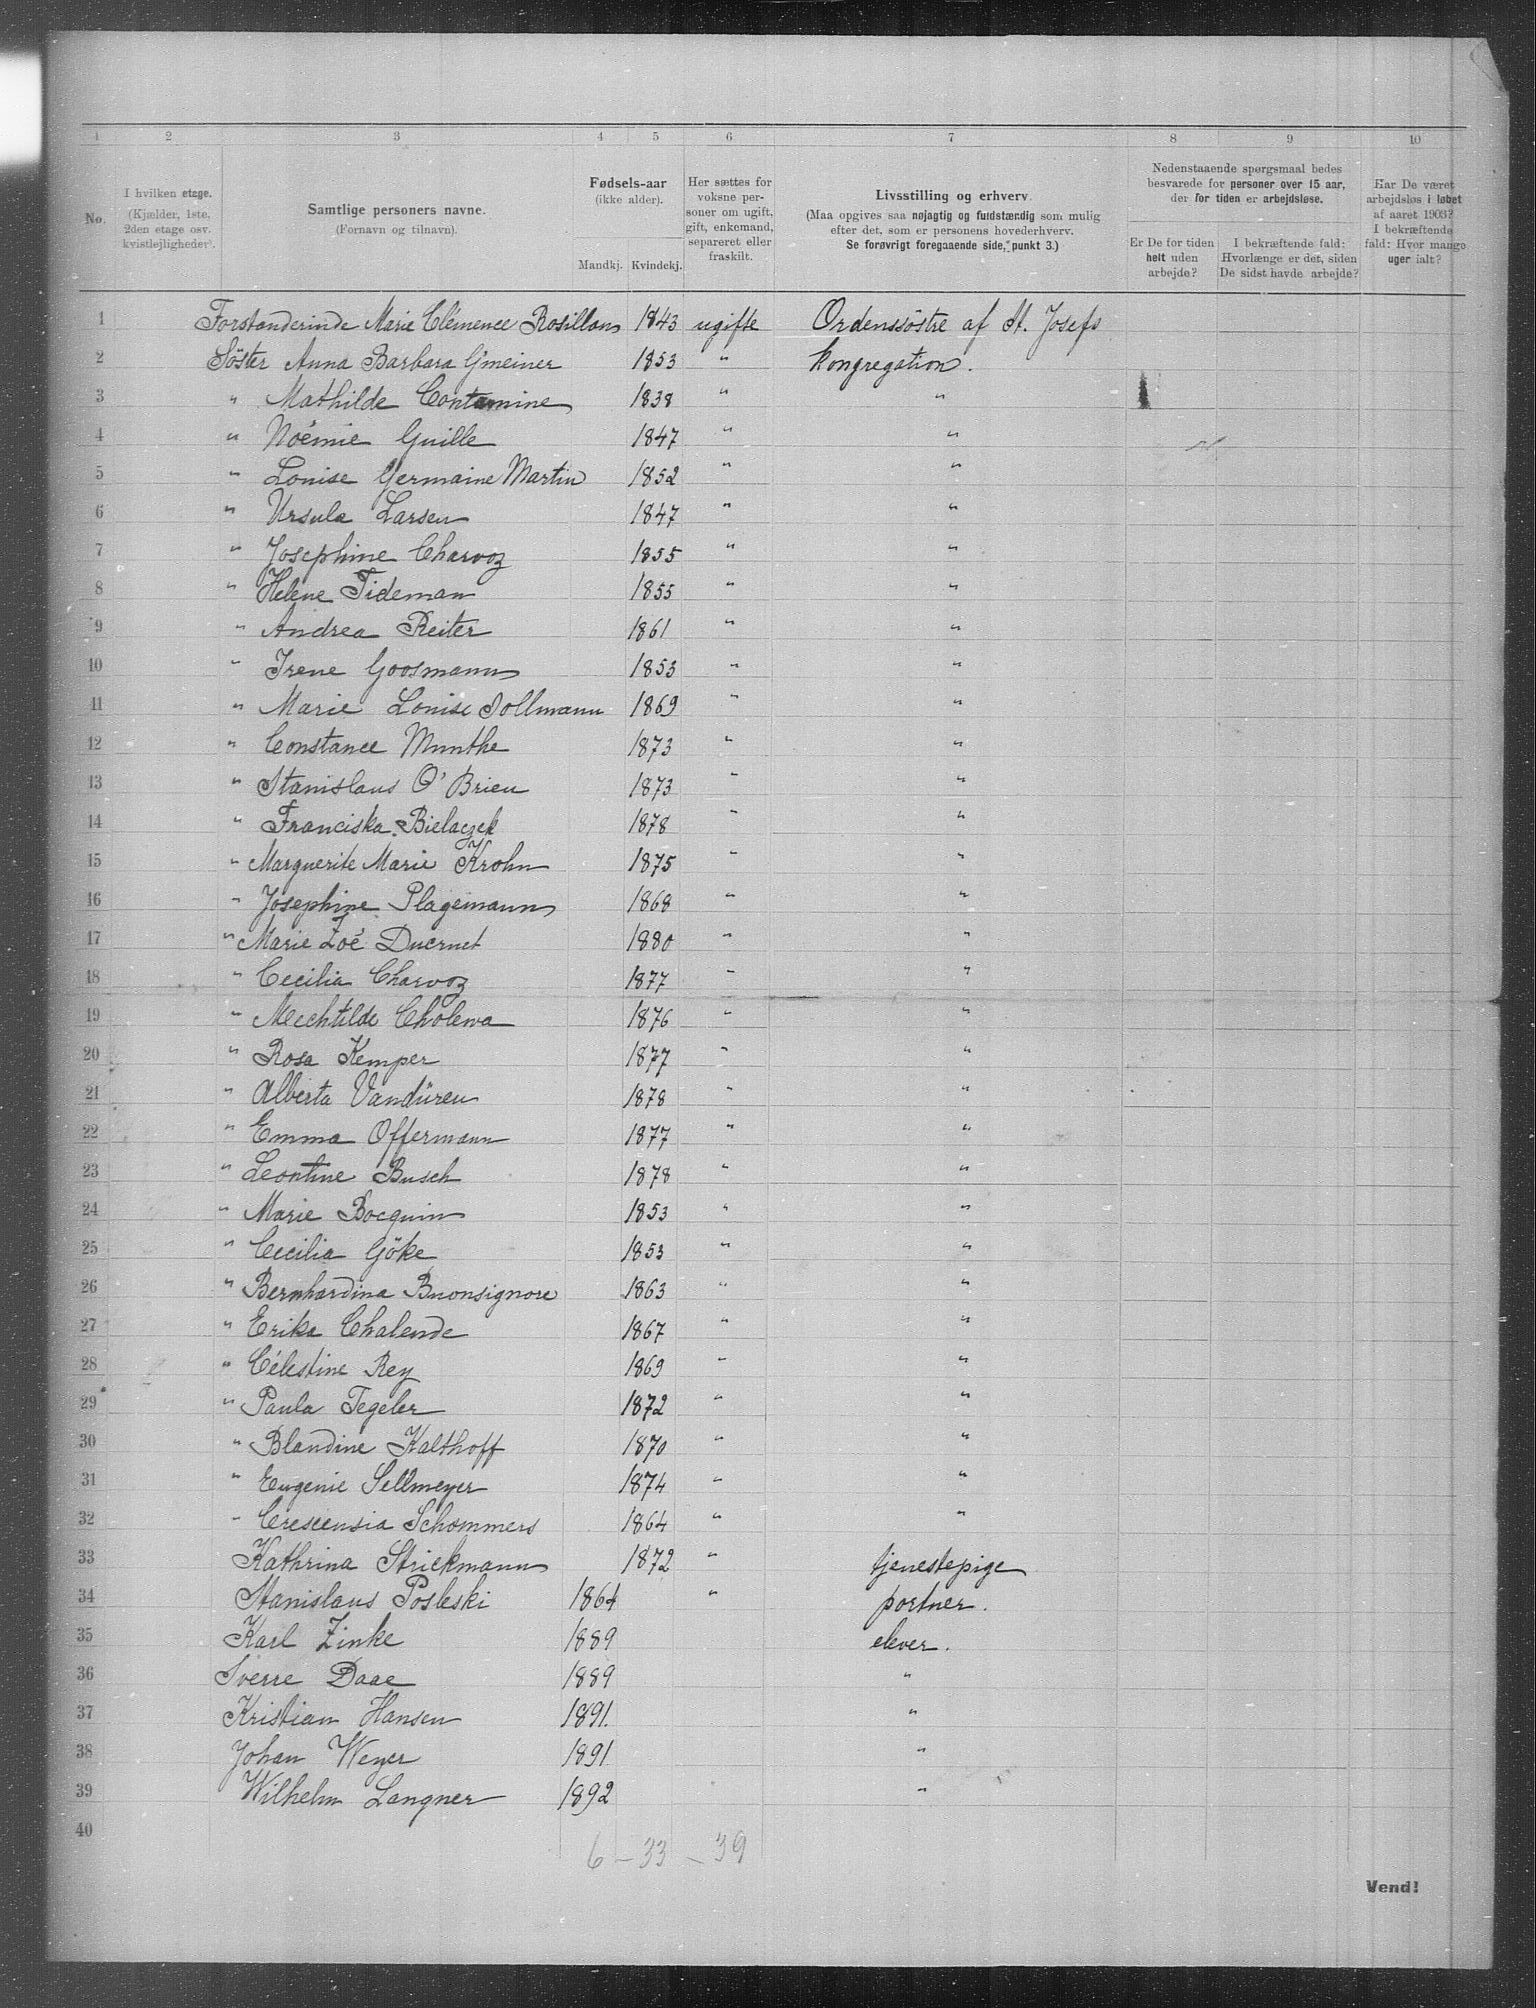 1 2 3 4 5 6 7 8 9 10
No.
I hvilken etage. (Kjælder, 1ste, 2den etage osv. kvistlejligheder).
Samtlige personers navne. (Fornavn og tilnavn).
Fødsels-aar (ikke alder).
Mandkj. Kvindekj.
Her sættes for voksne personer om ugift, gift, enkemand, separeret eller fraskilt.
Livsstilling og erhverv. (Maa opgives saa nøjagtig og fuldstændig som mulig efter det, som er personens hovederhverv. Se forøvrigt foregaaende side, punkt 3.)
Nedenstaaende spørgsmaal bedes besvarede for personer over 15 aar, der for tiden er arbejdsløse.
Er De for tiden helt uden arbejde?
I bekræftende fald: Hvorlænge er det, siden De sidst havde arbejde?
Har De været arbejdsløs i løbet af aaret 1903? I bekræftende fald: Hvor mange uger ialt?
1 Forstanderinde Marie Clémence Rosillon 1843 ugifte Ordenssöstre af St. Josefs
2 Söster Anna Barbara Gmeiner 1853 " kongregation.
3 " Mathilde Contamine 1838 " "
4 " Noémie Guille 1847 " "
5 " Louise Germaine Martin 1852 " "
6 " Ursula Larsen 1847 " "
7 " Josephine Charvoz 1855 " "
8 " Helene Tideman 1855 " "
9 " Andrea Reiter 1861 " "
10 " Irene Goosmann 1853 " "
11 " Marie Louise Sollmann 1869 " "
12 " Constance Munthe 1873 " "
13 " Stanislaus O'Brien 1873 " "
14 " Franciska Bielaczek 1878 " "
15 " Marguerite Marie Krohn 1875 " "
16 " Josephine Plagemann 1868 " "
17 " Marie Zoé Ducruet 1880 " "
18 " Cecilia Charvoz 1877 " "
19 " Mechtilde Cholewa 1876 " "
20 " Rosa Kemper 1877 " "
21 " Alberta Vandüren 1878 " "
22 " Emma Offermann 1877 " "
23 " Leontine Busch 1878 " "
24 " Marie Bocquin 1853 " "
25 " Cecilia Göke 1853 " "
26 " Bernhardina Buonsignore 1863 " "
27 " Erika Chalende 1867 " "
28 " Célestine Rey 1869 " "
29 " Paula Tegeler 1872 " "
30 " Blandine Kalthoff 1870 " "
31 " Eugenie Sellmeyer 1874 " "
32 " Crescensia Schommers 1864 " "
33 Kathrina Strickmann 1872 " tjenestepige
34 Stanislaus Posleski 1864 " portner.
35 Karl Zinke 1889 elever.
36 Sverre Daae 1889 "
37 Kristian Hansen 1891. "
38 Johan Weyer 1891 "
39 Wilhelm Langner 1892 "
40
6 – 33 – 39
Vend!